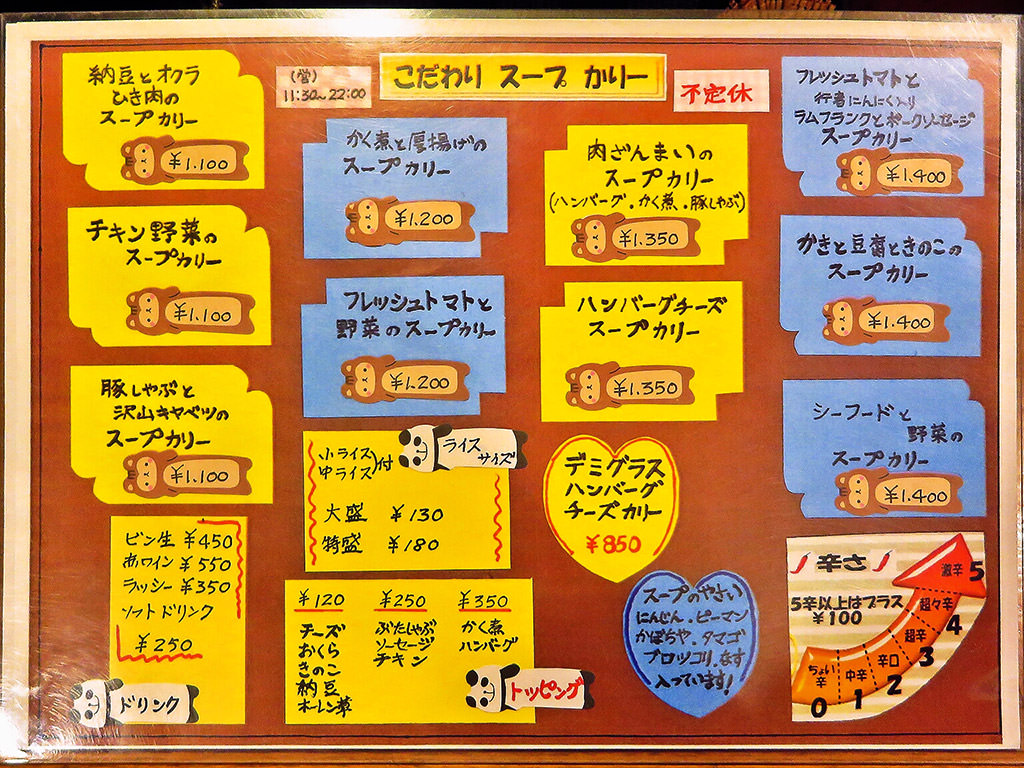 こだわり スープ カリー
(営)
11:30～22:00
不定休
納豆とオクラ
ひき肉の
スープカリー
¥1.100
チキン野菜の
スープカリー
¥1.100
豚しゃぶと
沢山キャベツの
スープカリー
¥1.100
かく煮と厚揚げの
スープカリー
¥1.200
フレッシュトマトと
野菜のスープカリー
¥1.200
肉ざんまいの
スープカリー
(ハンバーグ.かく煮.豚しゃぶ)
¥1.350
ハンバーグチーズ
スープカリー
¥1.350
フレッシュトマトと
行者にんにく入り
ラムフランクとポークソーセージ
スープカリー
¥1.400
かきと豆腐ときのこの
スープカリー
¥1.400
シーフードと
野菜の
スープカリー
¥1.400
ビン生 ¥450
赤ワイン ¥550
ラッシー ¥350
ソフトドリンク
¥250
ドリンク
ライス
サイズ
小ライス
中ライス)付
大盛 ¥130
特盛 ¥180
¥120 ¥250 ¥350
チーズ ぶたしゃぶ かく煮
おくら ソーセージ ハンバーグ
きのこ チキン
納豆
ホーレン草
トッピング
デミグラス
ハンバーグ
チーズカリー
¥850
スープのやさい
にんじん.ピーマン
かぼちゃ.タマゴ
ブロッコリ.なす
入っています!
辛さ
5辛以上はプラス
¥100
ちょい
辛
0
中辛
1
辛口
2
超辛
3
超々辛
4
激辛
5